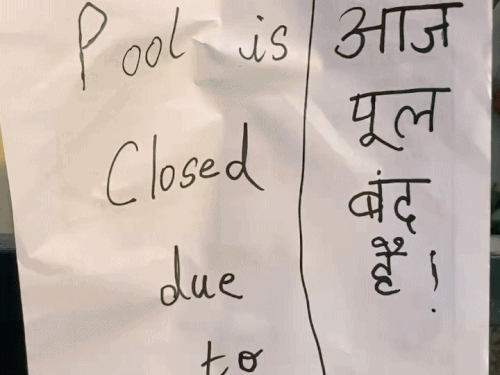 Pool is
Closed
due
to
आज
पूल
बंद
है!